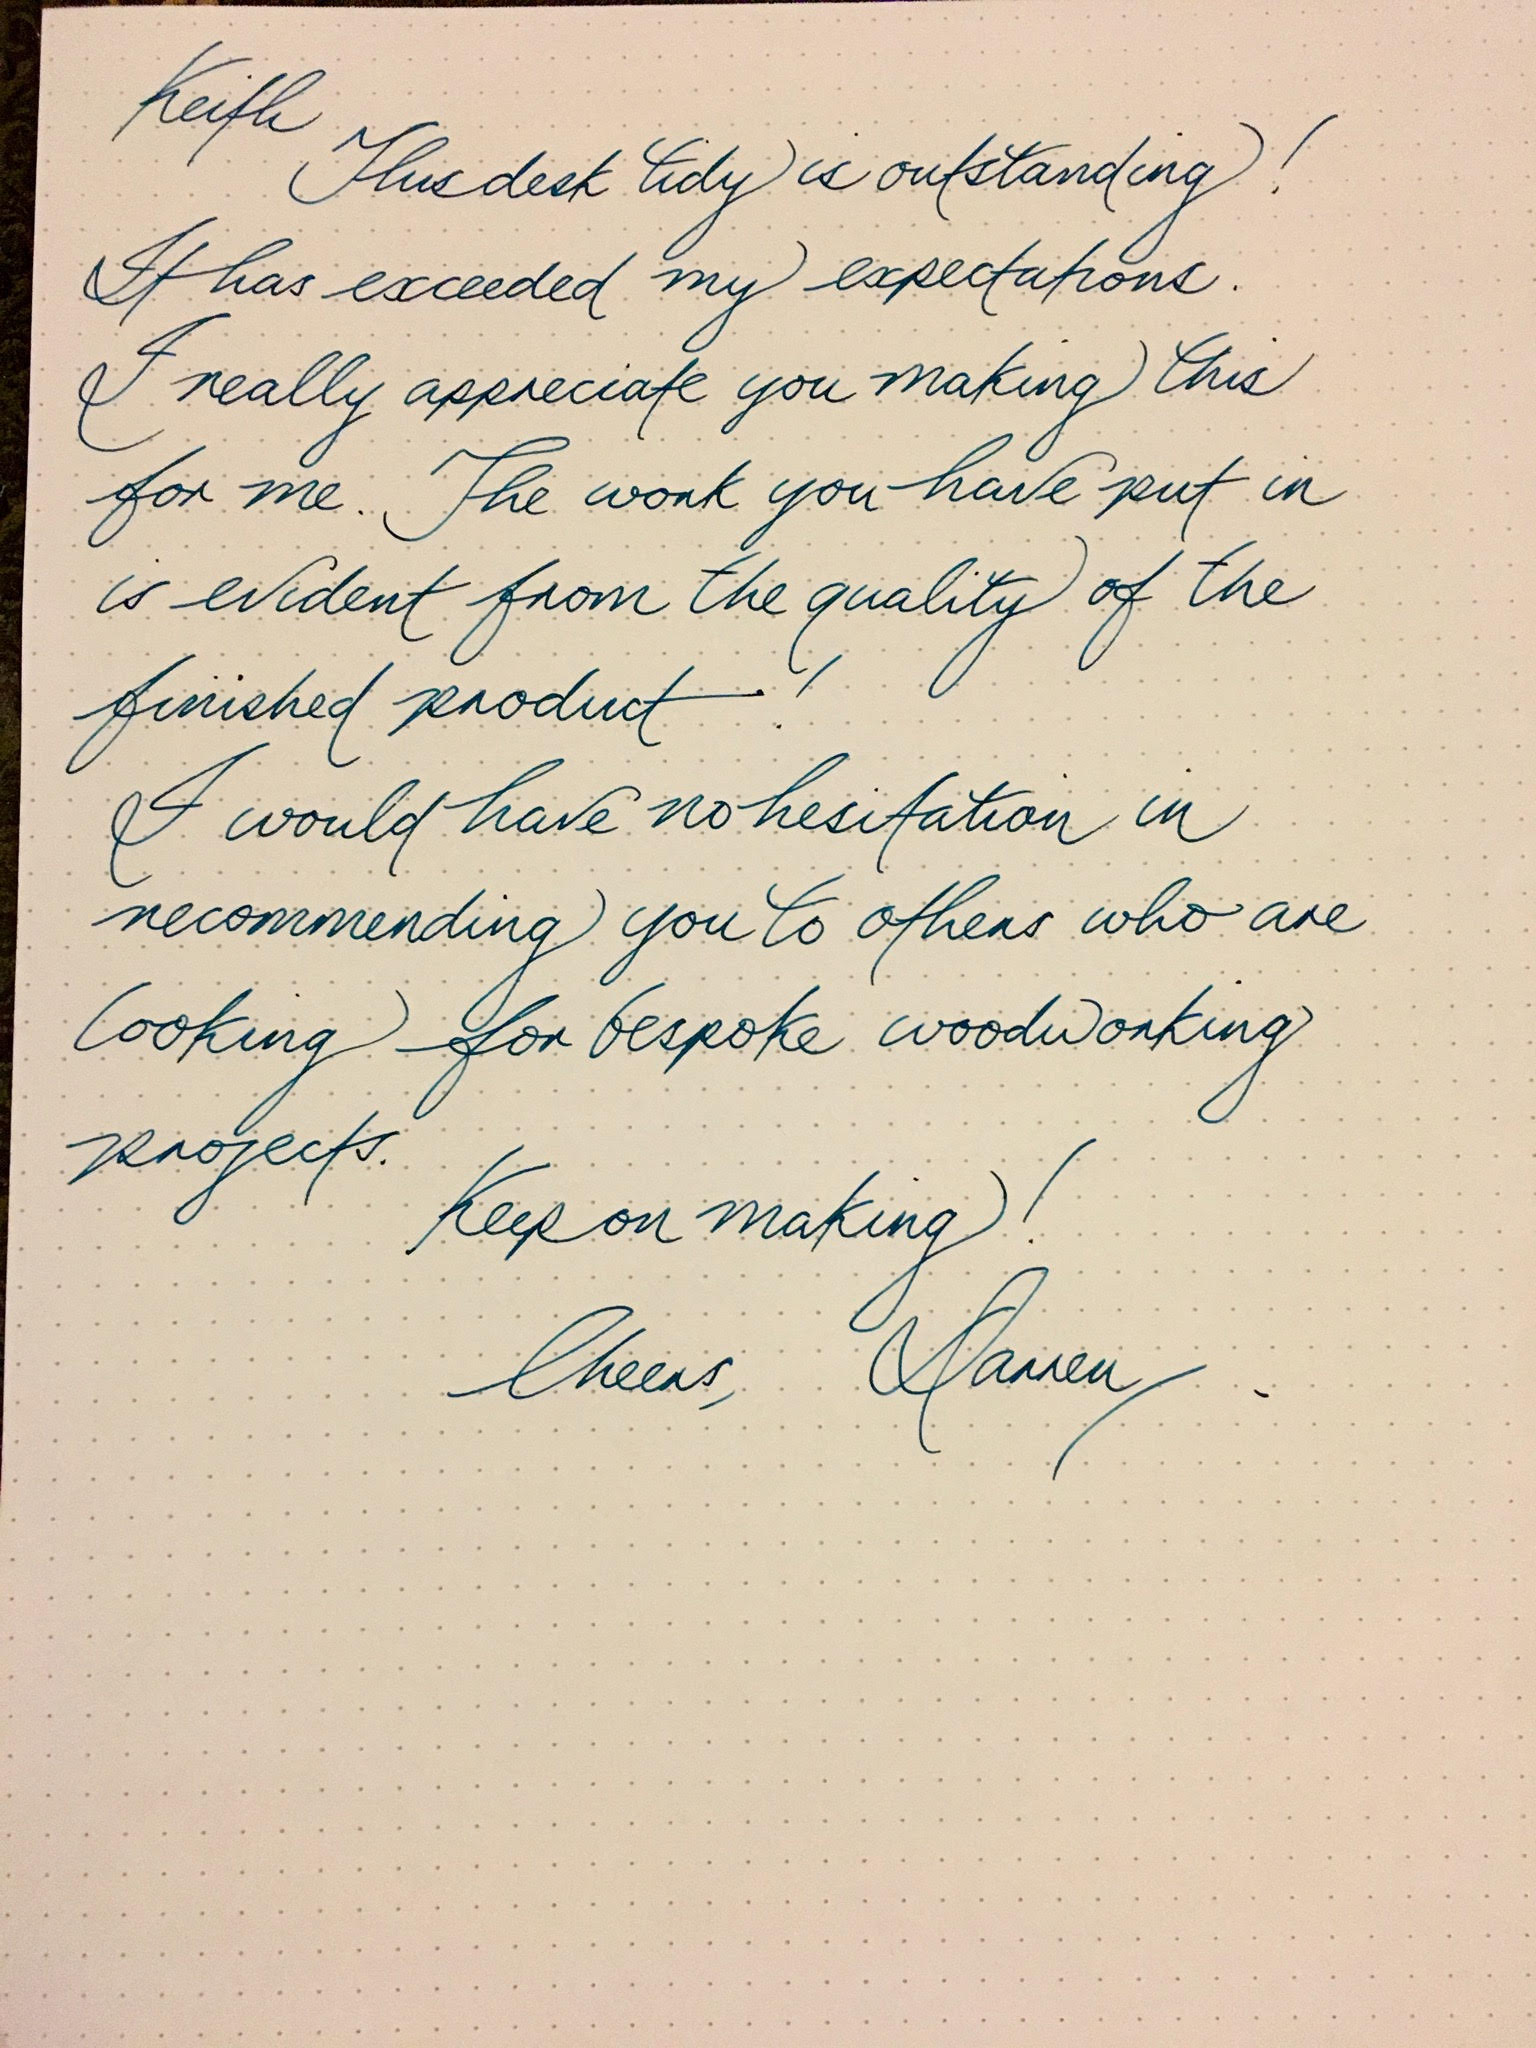 Keith
This desk tidy is outstanding!
It has exceeded my expectations.
I really appreciate you making this
for me. The work you have put in
is evident from the quality of the
finished product!
I would have no hesitation in
recommending you to others who are
looking for bespoke woodworking
projects.
Keep on making!
Cheers, Darren.